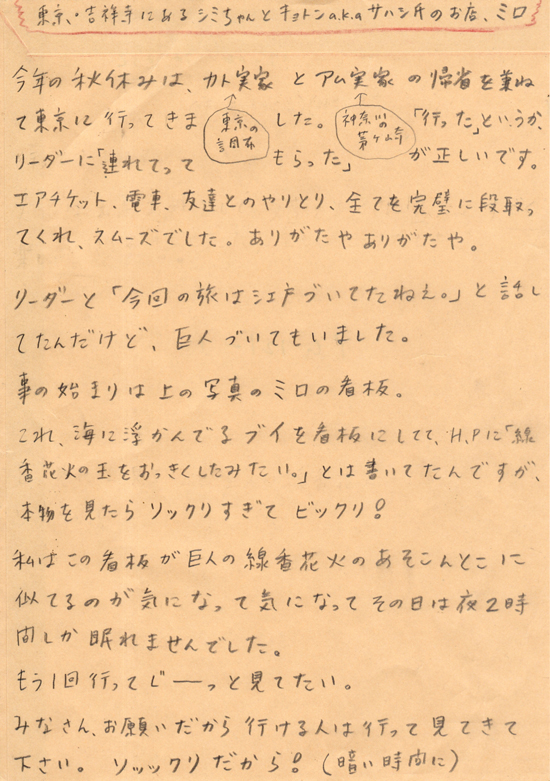 東京、吉祥寺にあるシミちゃんとキョトンa.k.aサハシ氏のお店、ミロ
今年の秋休みは、カト実家 と アム実家 の帰省を兼ね
て東京に行ってきま した。 「行った」というか、
東京の
調布
神奈川の
茅ヶ崎
リーダーに「連れてって もらった」 が正しいです。
エアチケット、電車、友達とのやりとり、全てを完璧に段取っ
てくれ、スムーズでした。ありがたやありがたや。
リーダーと「今回の旅は江戸づいてたねぇ。」と話し
てたんだけど、巨人づいてもいました。
事の始まりは上の写真のミロの看板。
これ、海に浮かんでるブイを看板にしてて、H.Pに「線
香花火の玉をおっきくしたみたい。」とは書いてたんですが、
本物を見たらソックリすぎてビックリ!
私はこの看板が巨人の線香花火のあそこんとこに
似てるのが気になって気になってその日は夜2時
間しか眠れませんでした。
もう1回行ってじーっと見てたい。
みなさん、お願いだから行ける人は行って見てきて
下さい。ソックリだから!(暗い時間に)